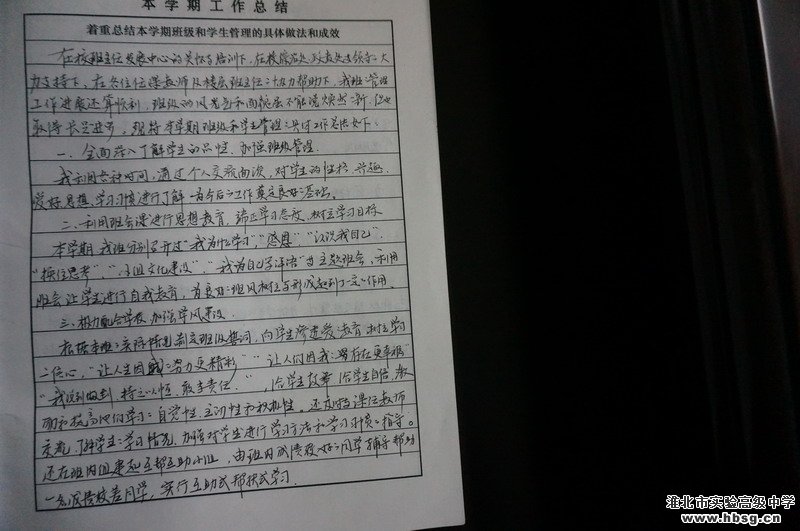 本学期工作总结
着重总结本学期班级和学生管理的具体做法和成效
在校班主任发展中心的关怀与培训下，在校党总支、政教处领导大
力支持下，在各位任课教师及楼层班主任的协力帮助下，我班管理
工作进展还算顺利，班级的风气和面貌虽不能说焕然一新，但也
取得长足进步，现将本学期班级和学生管理的具体工作总结如下：
一、全面深入了解学生的品性，加强班级管理
我利用各种时间，通过个人交流面谈，对学生的性格、兴趣、
爱好思想、学习习惯进行了解，为今后的工作奠定良好的基础。
二、利用班会课进行思想教育，端正学习态度，树立学习目标
本学期，我班分别召开过“我为什么学习”“感恩”“认识我自己”
“换位思考”，“小组文化建设”，“我为自己”等主题班会，利用
班会让学生进行自我教育，为良好的班风树立与形成起到了一定的作用。
三、极力配合学校，加强学风建设
根据本班的实际情况制定班级誓词，向学生渗透爱教育，树立学习
的信心，“让人生因我的努力更精彩”“让人们因我的存在更幸福”
“我说到做到，持之以恒，敢于责任”，给学生鼓舞，给学生自信，激
励和提高他们学习的自觉性、主动性和积极性。还及时与课任教师
交流，了解学生的学习情况，加强对学生进行学习方法和学习习惯的指导。
还在班内组建起互帮互助小组，由班内成绩较好的同学辅导帮助
一名成绩较差同学，实行互助式帮扶式学习
淮北市实验高级中学
www.hbsg.cn